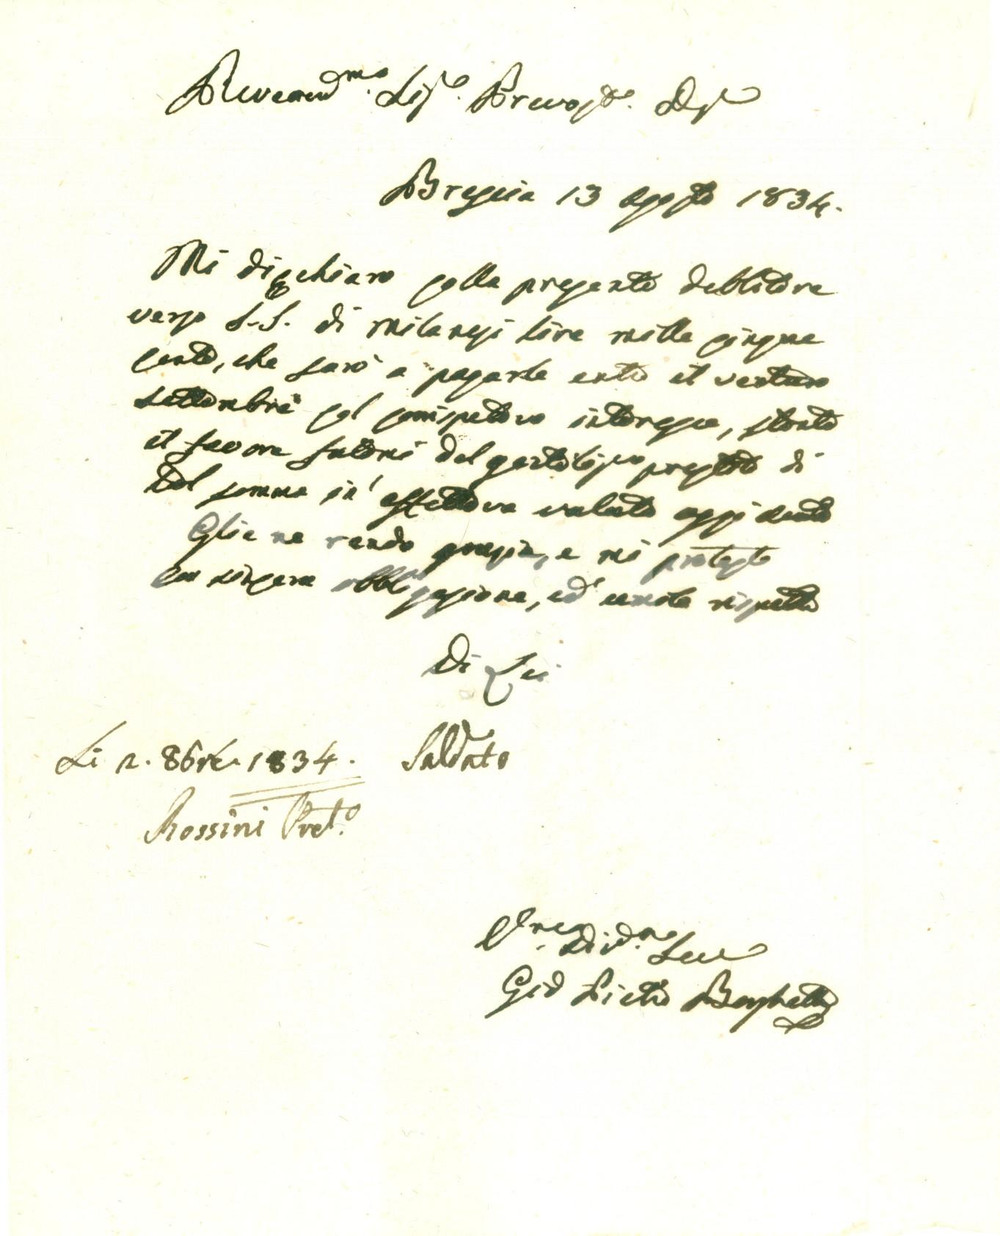 Reverend.mo Sig.e Prevosto
Brescia 13 Agosto 1834.
Mi dicchiaro colla presente debbitore
verso S.S. di milanesi lire mille cinque
cento, che sarò a pagarle entro il venturo
settembre col corrispetivo interesse, stante
il favore fattomi del gentilissimo prestito di
tal somma in effettiva valuta oggi
Gliene rendo grazie, e mi protesto
con sincera obbligazione, ed umile rispetto
Di Lei
Li 2. 8bre 1834. Saldato
Rossini Pret.o
Div.mo Ser
Gio Pietro Borghetti